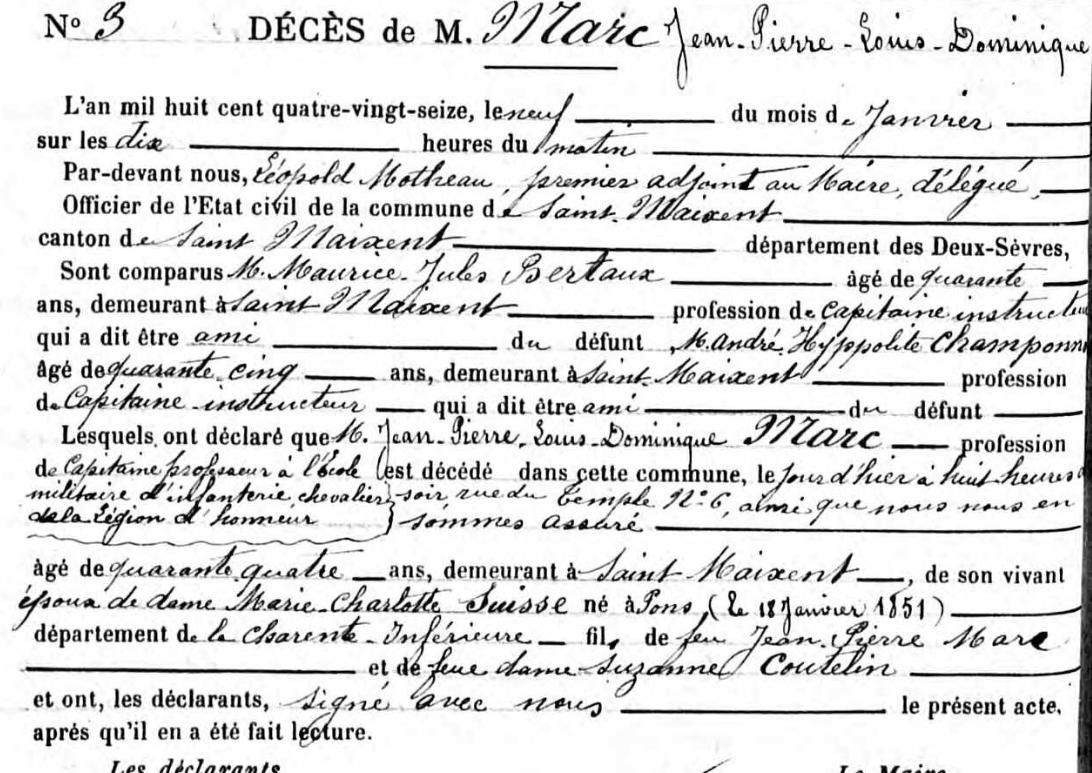 N° 3 DÉCÈS de M. Marc Jean-Pierre-Louis-Dominique
L'an mil huit cent quatre-vingt-seize, le neuf du mois de Janvier
sur les dix heures du matin
Par-devant nous, Léopold Motheau, premier adjoint au Maire, délégué,
Officier de l'Etat civil de la commune de Saint-Maixent
canton de Saint Maixent département des Deux-Sèvres,
Sont comparus M. Maurice Jules Bertaux âgé de quarante
ans, demeurant à Saint Maixent profession de Capitaine instructeu
qui a dit être ami du défunt, M. André Hyppolite Champonn
âgé de quarante-cinq ans, demeurant à Saint-Maixent profession
de Capitaine instructeur qui a dit être ami du défunt
Lesquels ont déclaré que M. Jean-Pierre-Louis-Dominique Marc profession
de Capitaine professeur à l'École est décédé dans cette commune, le jour d'hier à huit heures
militaire d'infanterie chevalier soir rue du Temple N° 6, ainsi que nous nous en
de la Légion d'honneur sommes assuré
âgé de quarante-quatre ans, demeurant à Saint Maixent, de son vivant
époux de dame Marie-Charlotte Suisse né à Pons, (le 18 Janvier 1851)
département de la Charente-Inférieure fils de feu Jean Pierre Marc
et de feue dame Suzanne Coutelin
et ont, les déclarants, signé avec nous le présent acte,
après qu'il en a été fait lecture.
Les déclarants Le Maire